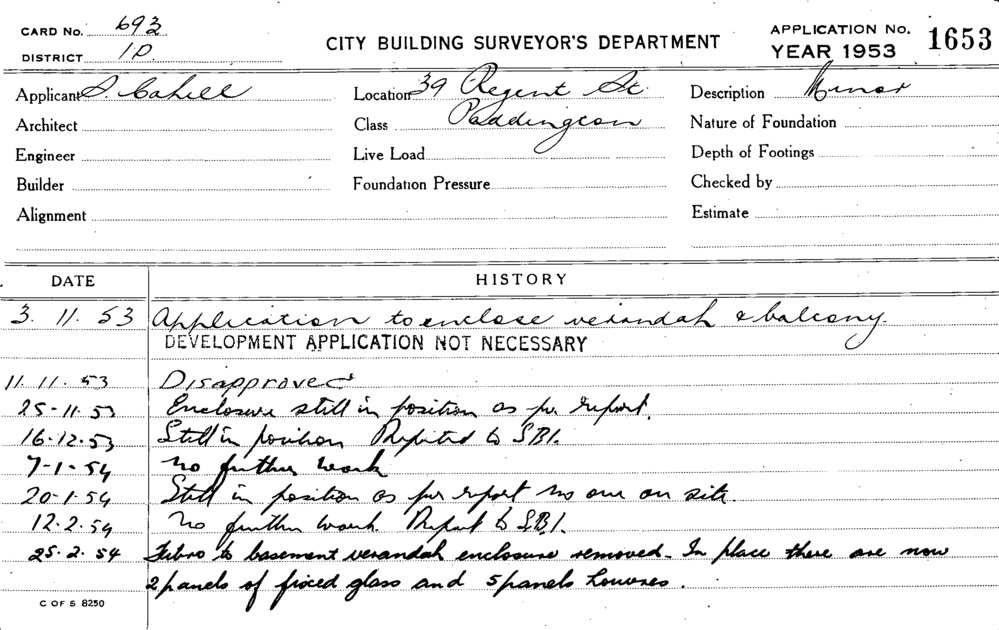 CARD No. 693
DISTRICT 1D.
CITY BUILDING SURVEYOR'S DEPARTMENT
APPLICATION No. 1653
YEAR 1953
Applicant S. Cahill
Location 39 Regent St.
Description Minor
Architect
Class Paddington
Nature of Foundation
Engineer
Live Load
Depth of Footings
Builder
Foundation Pressure
Checked by
Alignment
Estimate
DATE HISTORY
3. 11. 53 Application to enclose verandah & balcony.
DEVELOPMENT APPLICATION NOT NECESSARY
11. 11. 53 Disapproved
25-11-53 Enclosure still in position as per report.
16-12-53 Still in position Reported to S.B.I.
7-1-54 No further work
20-1-54 Still in position as per report no one on site.
12.2.54 No further work. Report to S.B.I.
25.2.54 Fibro to basement verandah enclosure removed. In place there are now
2 panels of fixed glass and 5 panels louvres.
C OF S 8250